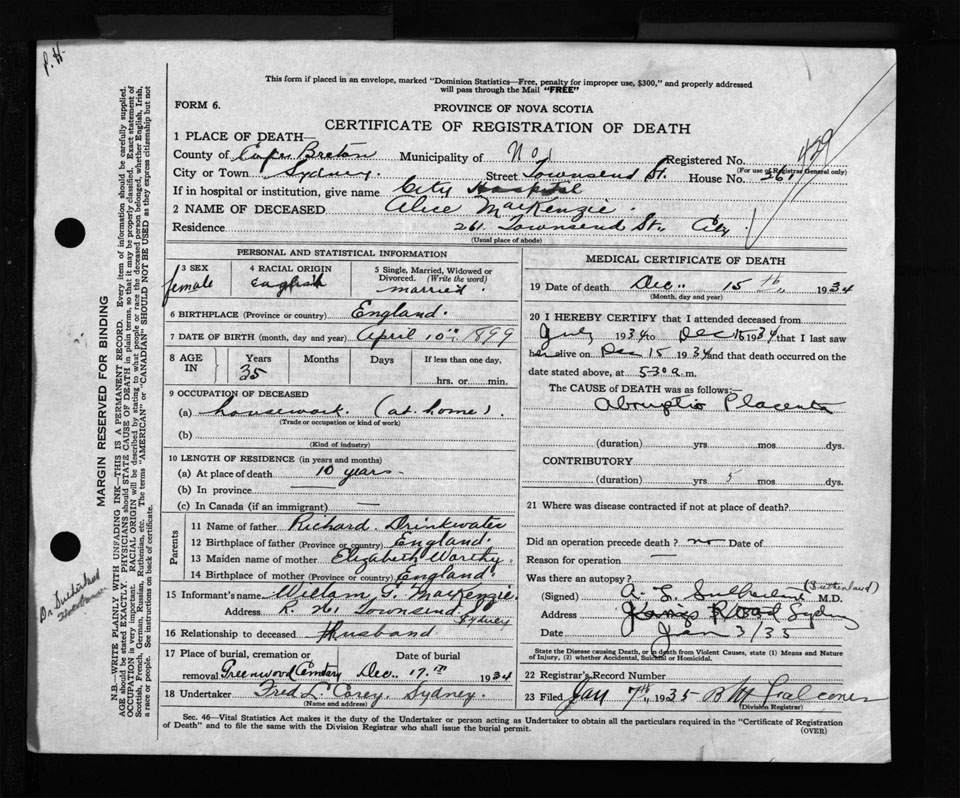 P. H.
This form if placed in an envelope, marked "Dominion Statistics—Free, penalty for improper use, $300," and properly addressed
will pass through the Mail "FREE"
FORM 6.
PROVINCE OF NOVA SCOTIA
CERTIFICATE OF REGISTRATION OF DEATH
429
1 PLACE OF DEATH—
County of Cape Breton Municipality of No 1 Registered No.
(For use of Registrar General only)
City or Town Sydney. Street Townsend St. House No. 261
If in hospital or institution, give name City Hospital
2 NAME OF DECEASED Alice MacKenzie.
Residence 261. Townsend St. City.
(Usual place of abode)
PERSONAL AND STATISTICAL INFORMATION
3 SEX female
4 RACIAL ORIGIN English
5 Single, Married, Widowed or Divorced. (Write the word) married.
6 BIRTHPLACE (Province or country) England.
7 DATE OF BIRTH (month, day and year) April 10th 1899
8 AGE IN Years 35 Months Days If less than one day, hrs. or min.
9 OCCUPATION OF DECEASED
(a) housework. (at home).
(Trade or occupation or kind of work)
(b)
(Kind of industry)
10 LENGTH OF RESIDENCE (in years and months)
(a) At place of death 10 years.
(b) In province —
(c) In Canada (if an immigrant) —
Parents
11 Name of father Richard Drinkwater
12 Birthplace of father (Province or country) England.
13 Maiden name of mother Elizabeth Worthy.
14 Birthplace of mother (Province or country) England.
15 Informant's name William G. MacKenzie.
Address Townsend St Sydney
16 Relationship to deceased Husband
17 Place of burial, cremation or removal Greenwood Cemetary
Date of burial Dec. 17th 1934
18 Undertaker Fred L. Corey, Sydney.
(Name and address)
MEDICAL CERTIFICATE OF DEATH
19 Date of death Dec. 15th, 1934
(Month, day and year)
20 I HEREBY CERTIFY that I attended deceased from
July 1934 to Dec 15 1934 that I last saw
her alive on Dec 15 1934 and that death occurred on the
date stated above, at 5.30 a.m.
The CAUSE of DEATH was as follows:—
Abruptio Placenta
(duration) yrs. mos. dys.
CONTRIBUTORY
(duration) yrs 5 mos. dys.
21 Where was disease contracted if not at place of death?
Did an operation precede death? no Date of
Reason for operation —
Was there an autopsy?
(Signed) A. L. Sutherland (Sutherland) M.D.
Address Kings Road Sydney
Date Jan 3/35
State the Disease causing Death, or in death from Violent Causes, state (1) Means and Nature of Injury, (2) whether Accidental, Suicidal or Homicidal.
22 Registrar's Record Number
23 Filed Jan 7th, 1935 Falconer
(Division Registrar)
Sec. 46—Vital Statistics Act makes it the duty of the Undertaker or person acting as Undertaker to obtain all the particulars required in the "Certificate of Registration
of Death" and to file the same with the Division Registrar who shall issue the burial permit.
(OVER)
MARGIN RESERVED FOR BINDING
N.B.—WRITE PLAINLY WITH UNFADING INK—THIS IS A PERMANENT RECORD. Every item of information should be carefully supplied.
AGE should be stated EXACTLY. PHYSICIANS should STATE CAUSE OF DEATH in plain terms, so that it may be properly classified. Exact statement of
OCCUPATION is very important. RACIAL ORIGIN will be described by stating to what people or race the deceased person belonged, whether English, Irish,
Scottish, French, German, Russian, Ruthenian, etc. The terms "AMERICAN" or "CANADIAN" SHOULD NOT BE USED as they express citizenship but not
a race or people. See instructions on back of certificate.
Dr Sutherland